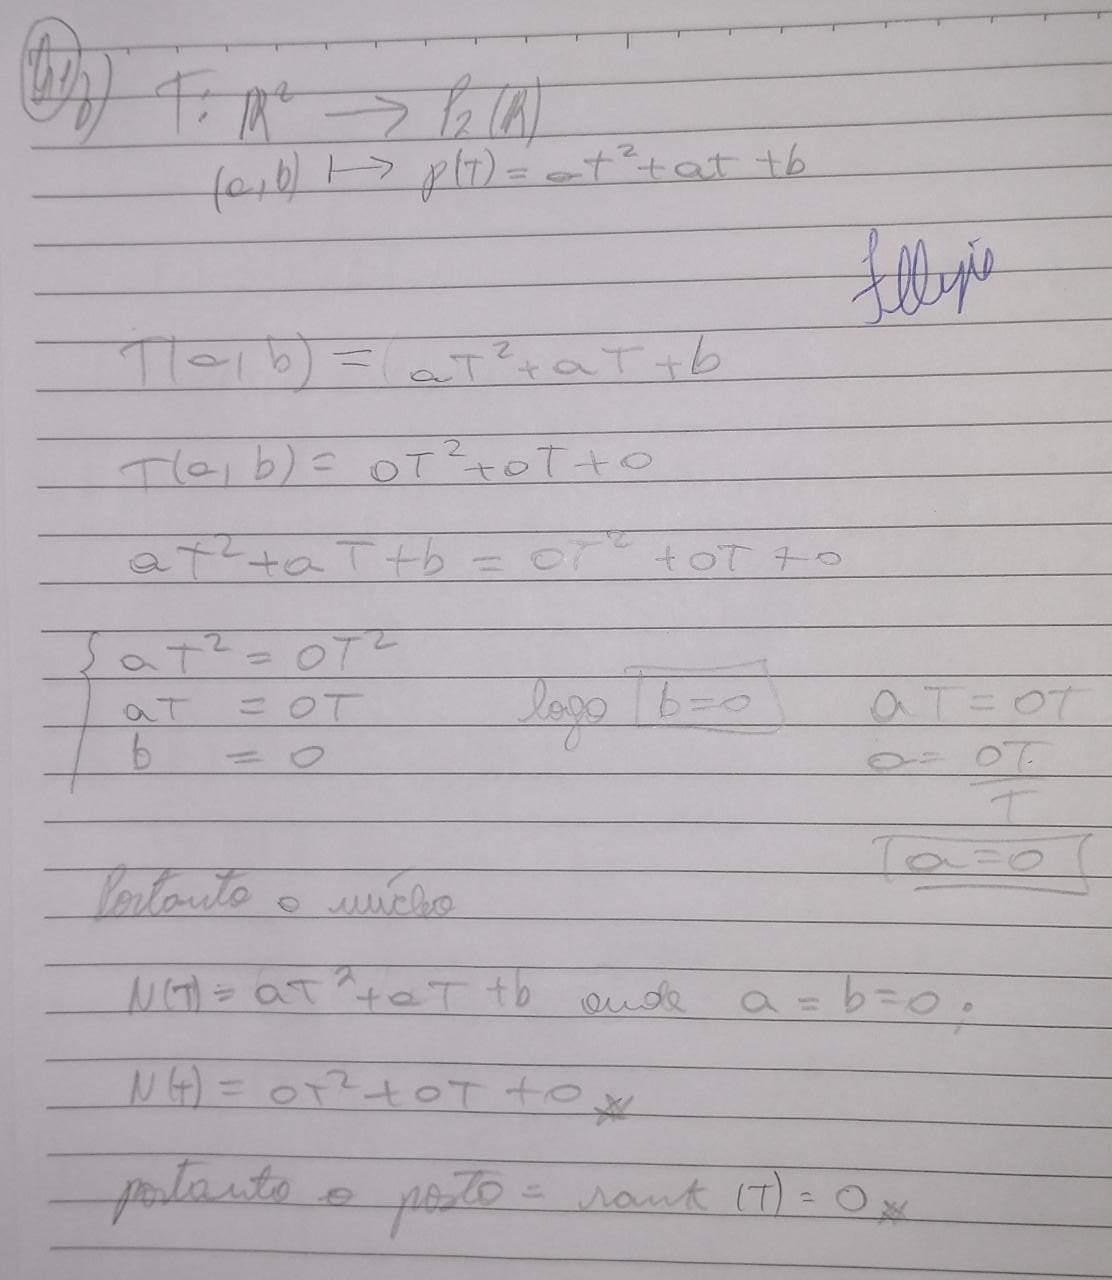 T: ℝ² → P₂(ℝ)
(a,b) ↦ p(T) = at² + at + b
T(a,b) = (aT² + aT + b
T(a,b) = 0T² + 0T + 0
aT² + aT + b = 0T² + 0T + 0
{ aT² = 0T²
aT = 0T logo b=0 aT = 0T
b = 0 a = 0T/T
a=0
Portanto o núcleo
N(T) = aT² + aT + b onde a = b = 0.
N(t) = 0T² + 0T + 0
portanto o posto = rank (T) = 0